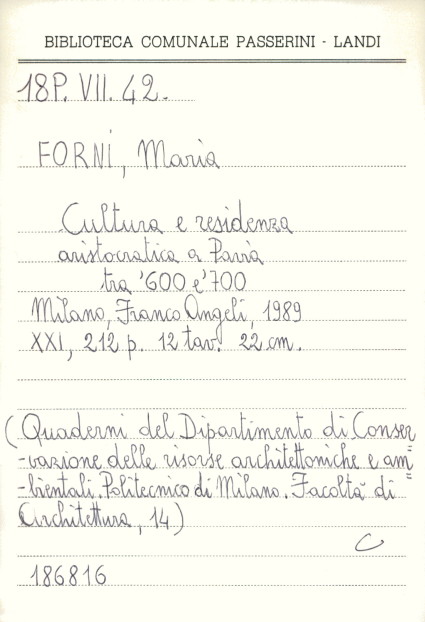 BIBLIOTECA COMUNALE PASSERINI - LANDI
18P. VII. 42.
FORNI, Maria
Cultura e residenza
aristocratica a Pavia
tra '600 e '700
Milano, Franco Angeli, 1989
XXI, 212 p. 12 tav. 22 cm.
(Quaderni del Dipartimento di Conser=
-vazione delle risorse architettoniche e am=
-bientali. Politecnico di Milano. Facoltà di
Architettura, 14)
C
186816